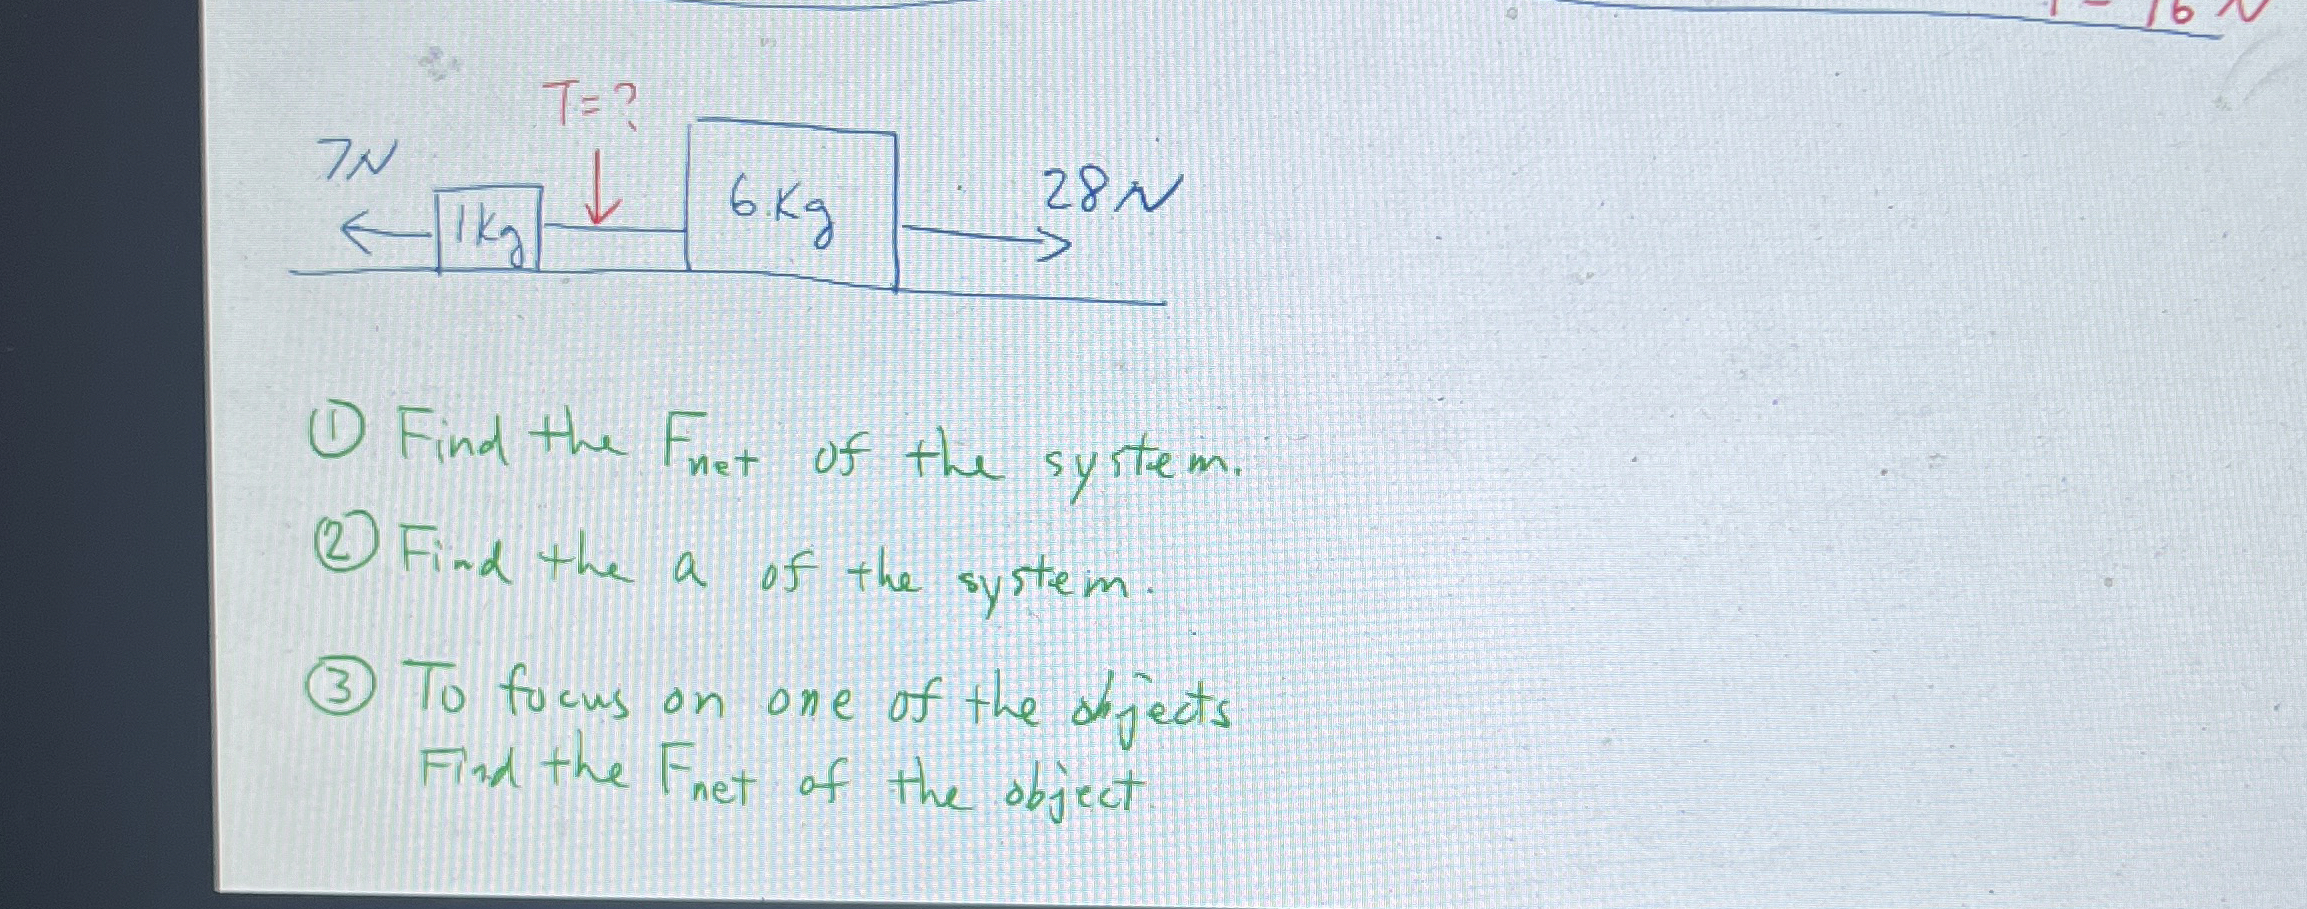 16 N
T=?
7N
1kg
6.kg
28N
① Find the Fnet of the system.
② Find the a of the system.
③ To focus on one of the objects
Find the Fnet of the object